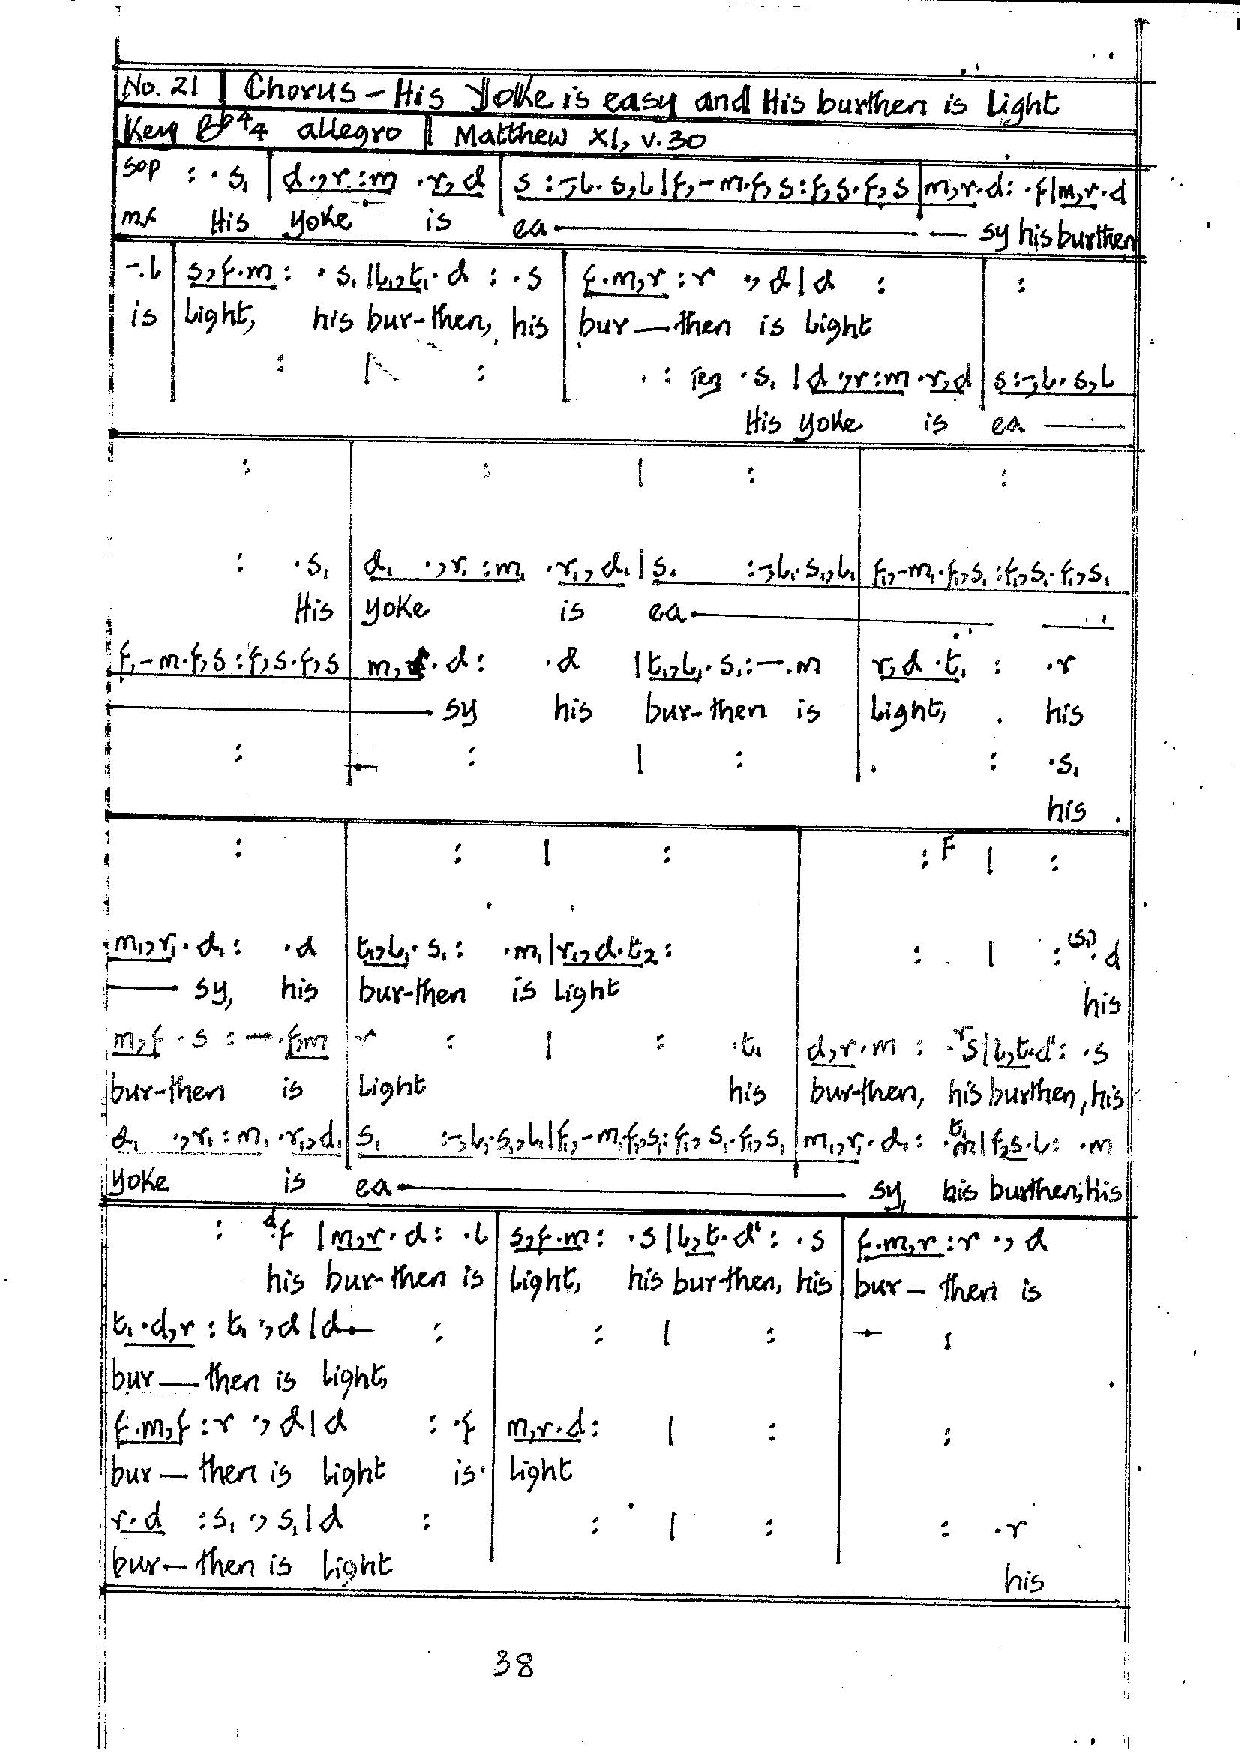 No. 21 | Chorus - His Yoke is easy and His burthen is Light
Key B♭ 4/4 allegro | Matthew XI, v.30
sop : .s₁ | d .,r :m .r,d | s :-,l.s,l | f,-m.f,s :f,s.f,s | m,r.d: .f | m,r.d
mf His yoke is ea— — sy his burthen
-.l | s,f.m : .s₁ | l₁,t₁.d : .s | f.m,r :r .,d | d : | :
is | Light, his bur-then, his | bur—then is Light
: | : : Ten .s₁ | d .,r :m .r,d | s :-,l.s,l
His yoke is ea —
: | : | : | :
: .s₁ | d₁ .,r₁ :m₁ .r₁,d₁ | s₁ :-,l₁.s₁,l₁ | f₁,-m₁.f₁,s₁ :f₁,s₁.f₁,s₁
His | yoke is ea— —
f,-m.f,s :f,s.f,s | m,r.d : .d | t₁,l₁.s₁ :-.m | r,d.t₁ : .r
— sy his bur-then is | Light, his
: | : | : | : .s₁
his
: | : | : | : F | :
m₁,r₁.d₁ : .d | t₁,l₁.s₁ : .m₁ | r₁,d.t₂ : | : | : (s) .d
— sy, his | bur-then is Light his
m,f.s :-.f,m | r : | : .t₁ | d,r.m : .ʳs | l,t.d' : .s
bur-then is | Light his | bur-then, his burthen, his
d₁ .,r₁ :m₁ .r₁,d₁ | s₁ :-,l₁.s₁,l₁ | f₁,-m₁.f₁,s₁ :f₁,s₁.f₁,s₁ | m₁,r₁.d₁ : .ᵗ¹m | f,s.l : .m
yoke is | ea— sy, his burthen, His
: .ᵈf | m,r.d : .l | s,f.m : .s | l,t.d' : .s | f.m,r :r .,d
his bur-then is | Light, his bur-then, his | bur- then is
t₁.d,r :t₁ .,d | d— : | : | : | - :
bur—then is Light,
f.m,f :r .,d | d : .f | m,r.d : | : | :
bur—then is Light is | Light
r.d :s₁ .,s₁ | d : | : | : | : .r
bur—then is Light
his
38